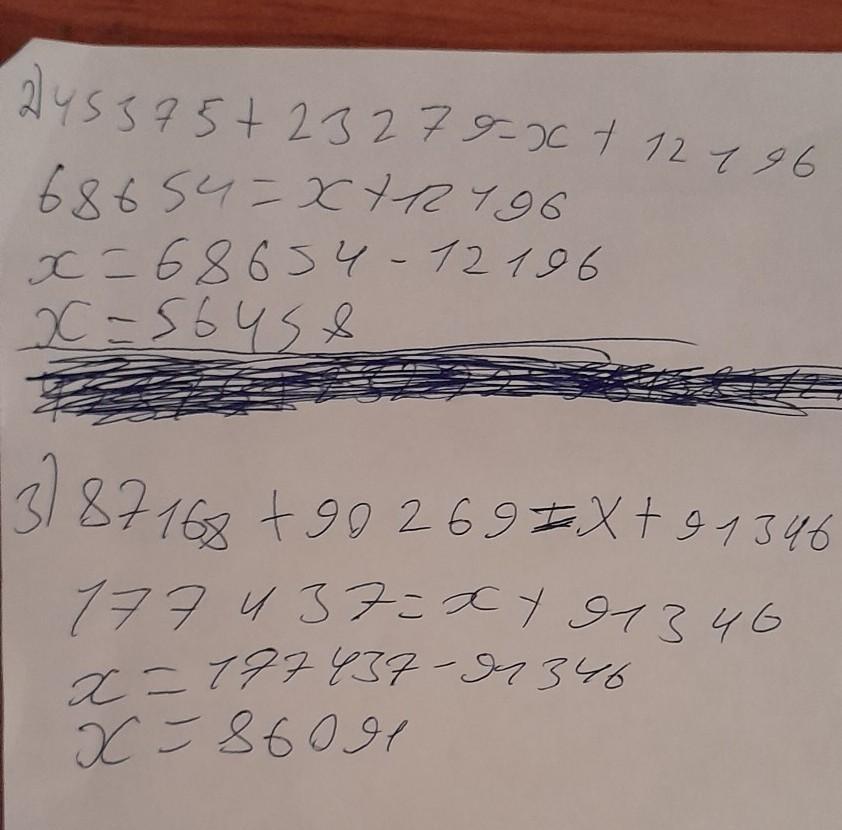 2) 45375 + 23279 = x + 12196
68654 = x + 12196
x = 68654 - 12196
x = 56458
3) 87168 + 90269 = x + 91346
177437 = x + 91346
x = 177437 - 91346
x = 86091